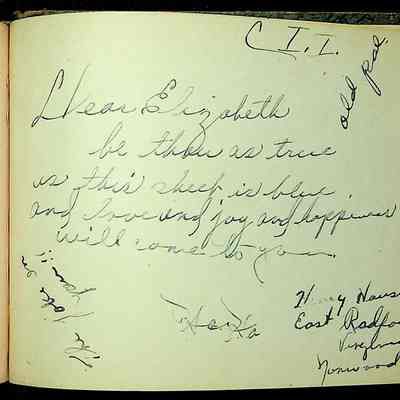 C I. I.
old pal.
Dear Elizabeth
be thou as true
as this sheet is blue
and love and joy and happiness
will come to you.
The joke's on
you!!
Ha Ha
Henry Haus
East Radfo
Virginia
Norwood